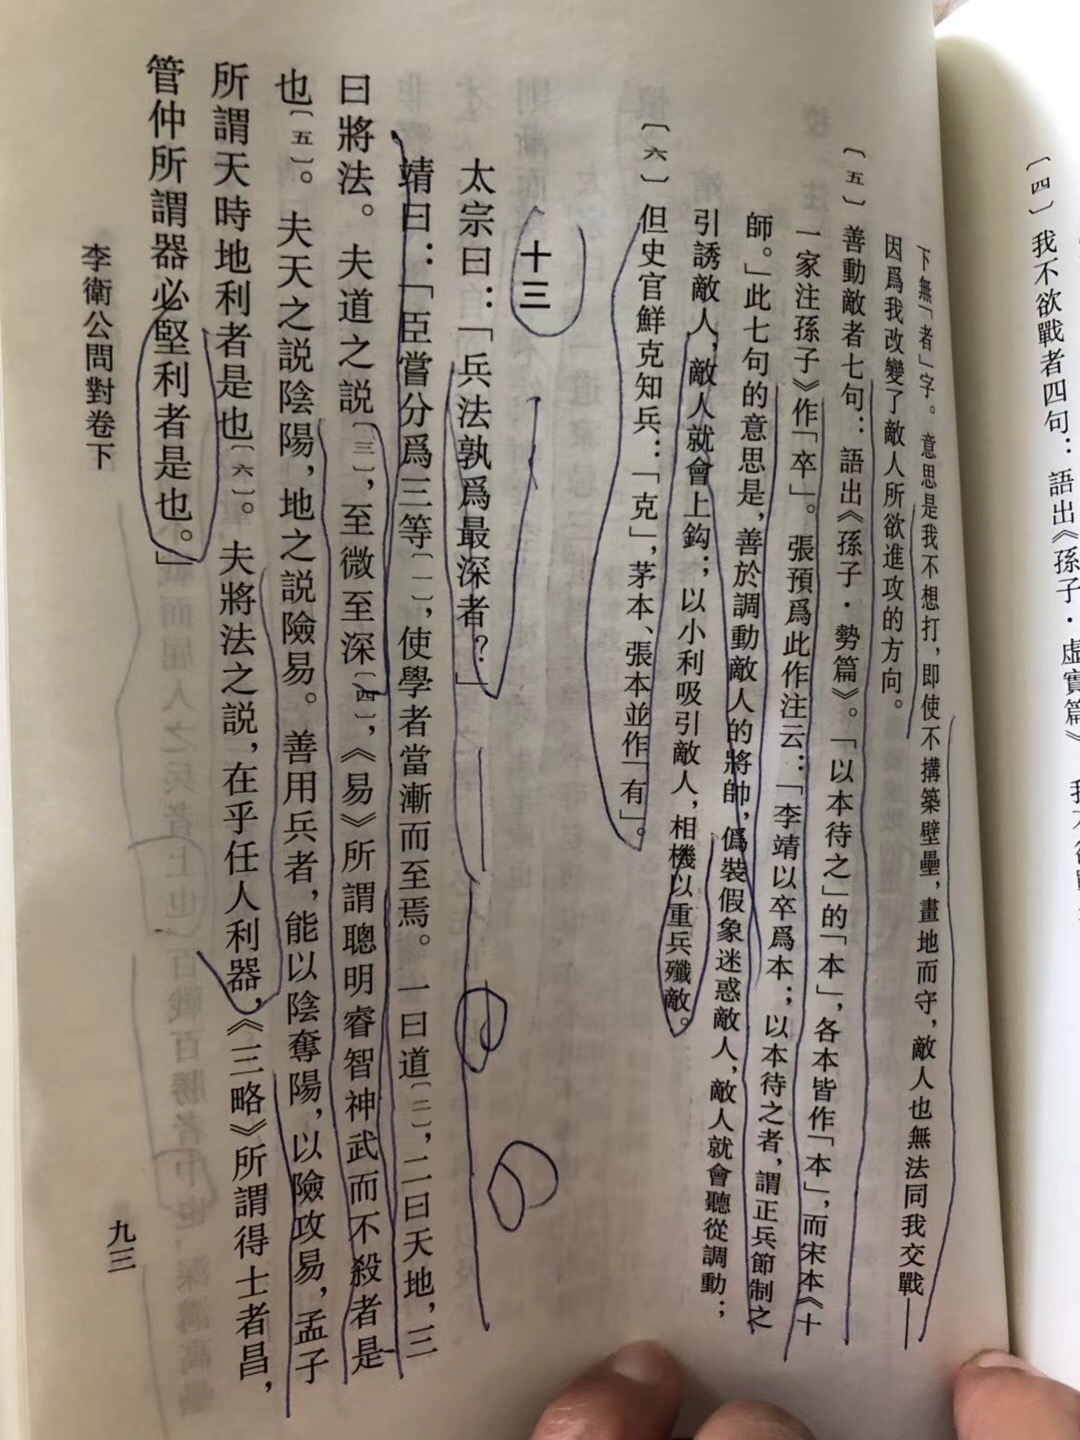 〔四〕我不欲戰者四句：語出《孫子·虛實篇》
下無「者」字。意思是我不想打，即使不搆築壁壘，畫地而守，敵人也無法同我交戰——
因爲我改變了敵人所欲進攻的方向。
〔五〕善動敵者七句：語出《孫子·勢篇》。「以本待之」的「本」，各本皆作「本」，而宋本《十
一家注孫子》作「卒」。張預爲此作注云：「李靖以卒爲本；以本待之者，謂正兵節制之
師。」此七句的意思是，善於調動敵人的將帥，僞裝假象迷惑敵人，敵人就會聽從調動；
引誘敵人，敵人就會上鈎；以小利吸引敵人，相機以重兵殲敵。
〔六〕但史官鮮克知兵：「克」，茅本、張本並作「有」。
十三
太宗曰：「兵法孰爲最深者？」
靖曰：「臣嘗分爲三等〔一〕，使學者當漸而至焉。一曰道〔二〕，二曰天地，三
曰將法。夫道之説〔三〕，至微至深〔四〕，《易》所謂聰明睿智神武而不殺者是
也〔五〕。夫天之説陰陽，地之説險易。善用兵者，能以陰奪陽，以險攻易，孟子
所謂天時地利者是也〔六〕。夫將法之説，在乎任人利器，《三略》所謂得士者昌，
管仲所謂器必堅利者是也。」
李衛公問對卷下
九三